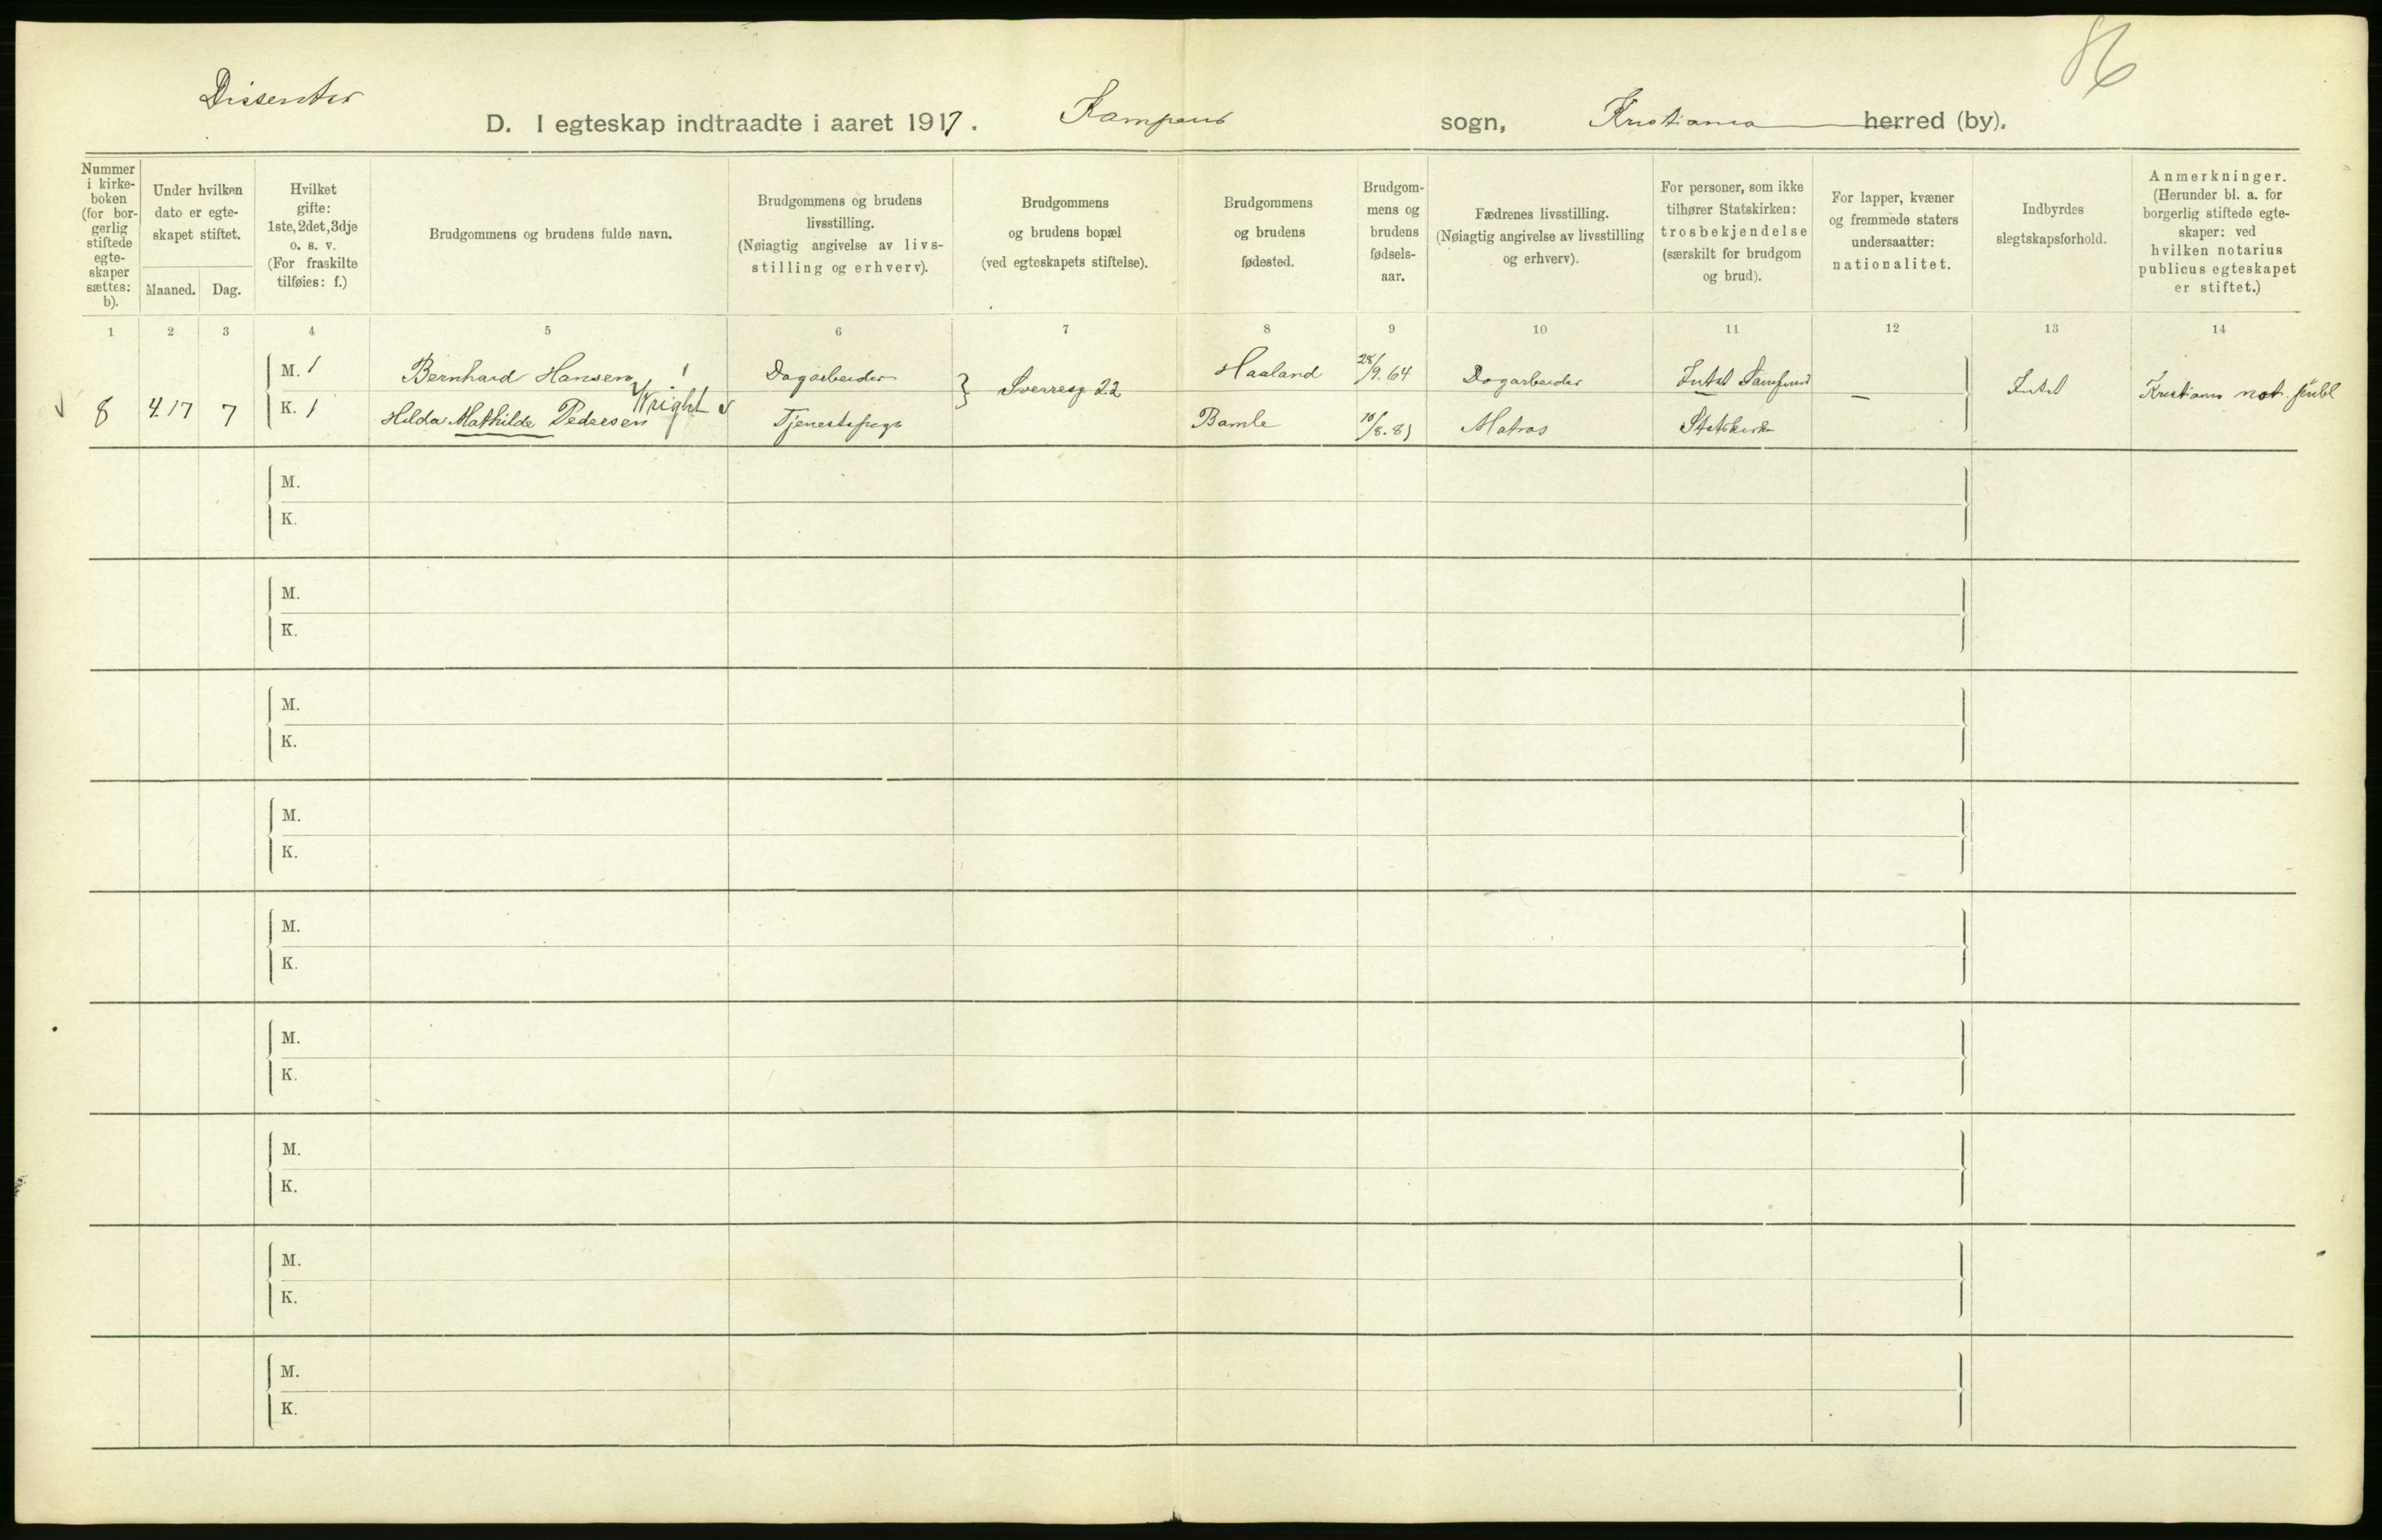 86
Dissenter
D. I egteskap indtraadte i aaret 1917. Kampens sogn, Kristiania herred (by).
Nummer i kirkeboken (for borgerlig stiftede egteskaper sættes: b).
Under hvilken dato er egteskapet stiftet.
Maaned. Dag.
Hvilket gifte: 1ste, 2det, 3dje o. s. v. (For fraskilte tilføies: f.)
Brudgommens og brudens fulde navn.
Brudgommens og brudens livsstilling. (Nøiagtig angivelse av livsstilling og erhverv).
Brudgommens og brudens bopæl (ved egteskapets stiftelse).
Brudgommens og brudens fødested.
Brudgommens og brudens fødselsaar.
Fædrenes livsstilling. (Nøiagtig angivelse av livsstilling og erhverv).
For personer, som ikke tilhører Statskirken: trosbekjendelse (særskilt for brudgom og brud).
For lapper, kvæner og fremmede staters undersaatter: nationalitet.
Indbyrdes slegtskapsforhold.
Anmerkninger. (Herunder bl. a. for borgerlig stiftede egteskaper: ved hvilken notarius publicus egteskapet er stiftet.)
1 2 3 4 5 6 7 8 9 10 11 12 13 14
M. 1 Bernhard Hansen Dagarbeider Haaland 28/9. 64 Dagarbeider Intet Samfund
8 4.17 7 Sverresg 22 — Intet Kristiania not. publ
K. 1 Hilda Mathilde Pedersen Wright Tjenestepige Bamle 10/8. 81 Matros Statskirken
M.
K.
M.
K.
M.
K.
M.
K.
M.
K.
M.
K.
M.
K.
M.
K.
M.
K.